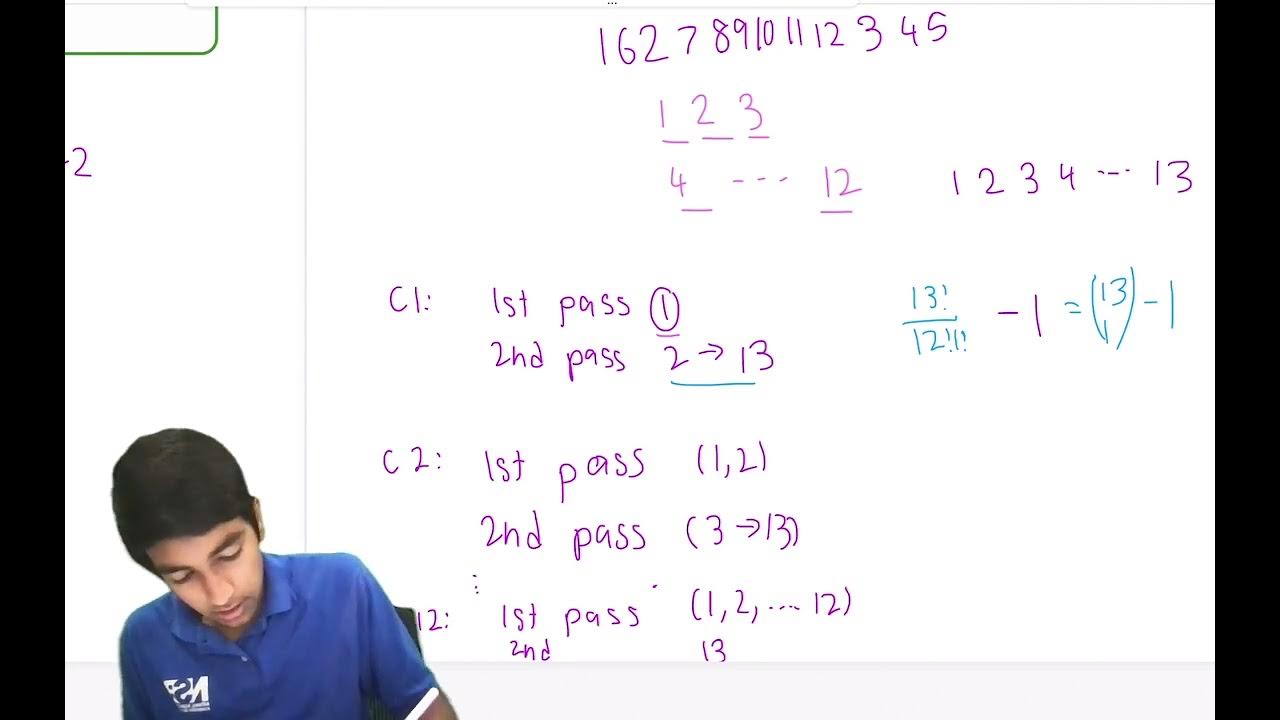 1 6 2 7 8 9 10 11 12 3 4 5
1 2 3
-2
4 --- 12
1 2 3 4 --- 13
C1: 1st pass 1
2nd pass 2 → 13
13!/12!1! - 1 = (13 1) - 1
C2: 1st pass (1,2)
2nd pass (3 → 13)
⋮
12: 1st pass (1, 2, ... 12)
2nd 13